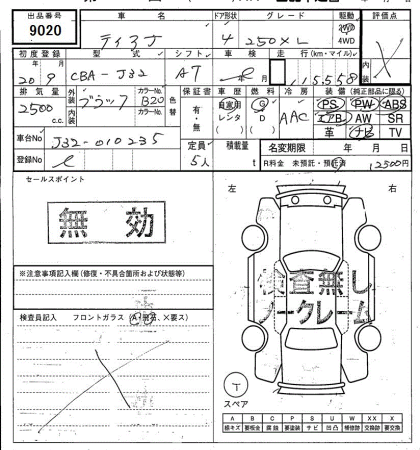 出品番号 車名 ドア形状 グレード 駆動 評価点
9020 ティアナ 4 250XL 2WD 4WD X
初度登録 型式 シフト 車検 走行(km・マイル) 内装
20年9月 CBA-J32 AT 115,558
排気量 外装 カラーNo. 色替 保証書 車歴 燃料 冷房 装備(純正部品に限る)
2500 c.c. ブラック B20 有・無 自家用 レンタ G D AAC PS PW ABS
内装 カラーNo. エアB AW SR
車台No. J32-010235 革 ナビ TV
定員 5人 積載量 t
名変期限 年 月 日
登録No. R料金 未預託・預託済 12500円
セールスポイント
無効
左 右
※注意事項記入欄(修復・不具合箇所および状態等)
検査員記入 フロントガラス
検査無し
ノークレーム
T
スペア
A B C P S U W X XX X
線キズ 要板金 腐蝕 要塗装 サビ 凹凸 補修跡 交換跡 要交換